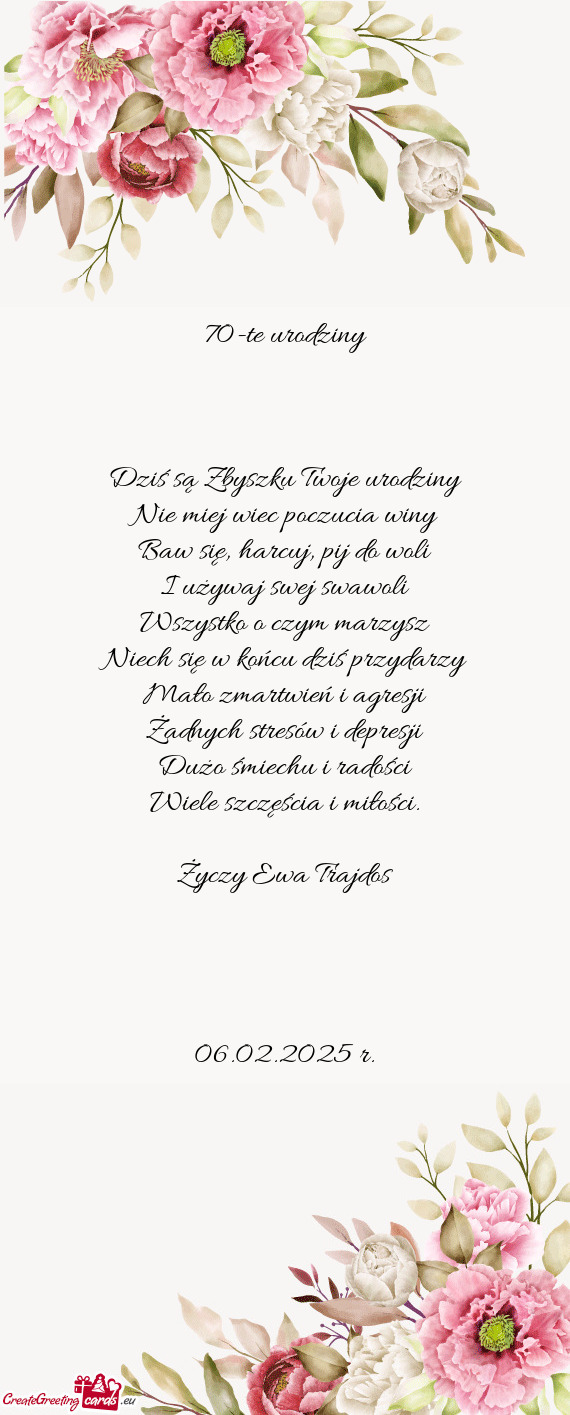 70-te urodziny
Dziś są Zbyszku Twoje urodziny
Nie miej wiec poczucia winy
Baw się, harcuj, pij do woli
I używaj swej swawoli
Wszystko o czym marzysz
Niech się w końcu dziś przydarzy
Mało zmartwień i agresji
Żadnych stresów i depresji
Dużo śmiechu i radości
Wiele szczęścia i miłości.
Życzy Ewa Trajdos
06.02.2025 r.
CreateGreeting cards .eu